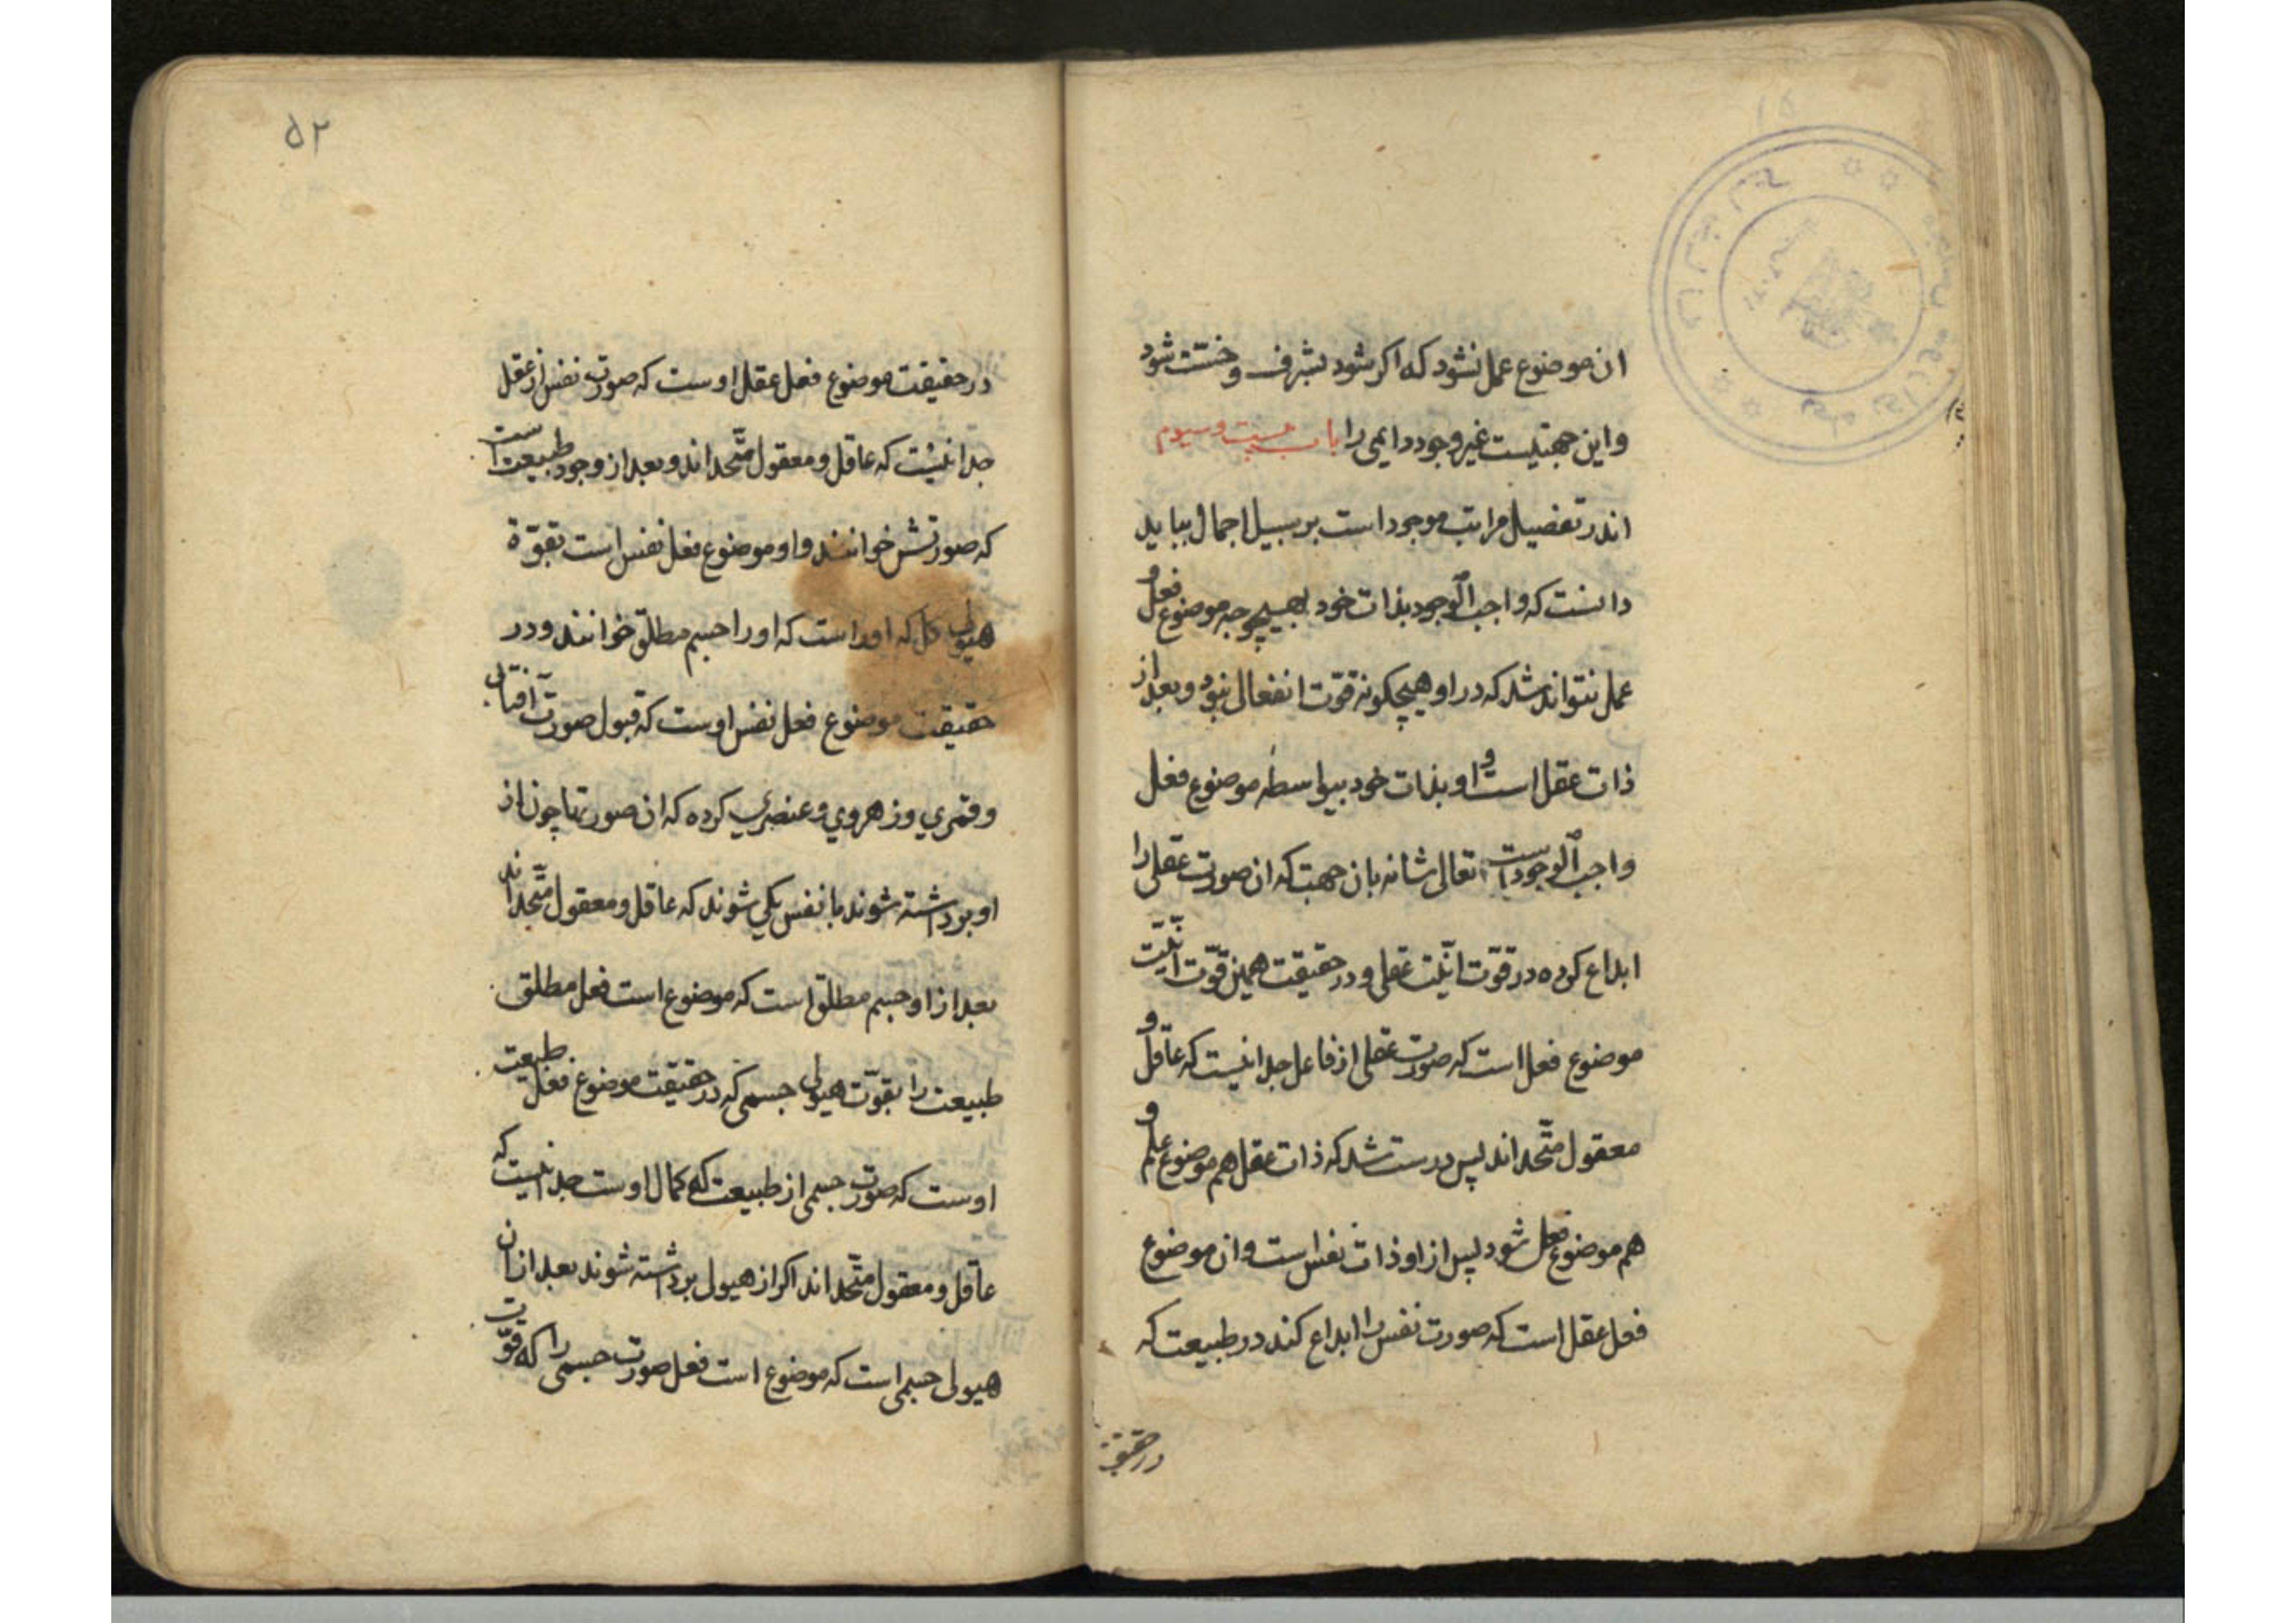 ان موضوع عمل نشود که اکر شود بشرف و خسّت شود
و این جهتیست غیر وجود دایمی را باب بیست و سیوم
اندر تفصیل مراتب موجود است بر سبیل اجمال بباید
دانست که واجب الوجود بذات خود بهیچوجه موضوع فعل و
عمل نتواند شد که در او هیچکونه قوّت انفعال نبود و بعد از
ذات عقل است و او بذات خود بیواسطه موضوع فعل
واجب الوجود است تعالی شانه بان جهت که ان صورت عقلی را
ابداع کرده در قوّت انّیّت عقلی و در حقیقت همین قوّت انّیّت
موضوع فعل است که صورت عقلی از فاعل جدا نیست که عاقل و
معقول متّحد اند پس درست شد که ذات عقل هم موضوع علم و
هم موضوع فعل شود پس از او ذات نفس است و ان موضوع
فعل عقل است که صورت نفس را ابداع کند در طبیعت که
در حقیقت
۵۲
در حقیقت موضوع فعل عقل اوست که صورت نفس از عقل
جدا نیست که عاقل و معقول متّحد اند و بعد از وجود طبیعت است
که صورتش خوانند و او موضوع فعل نفس است بقوّة
هیولی کل که اوراست که اورا جسم مطلق خوانند و در
حقیقت موضوع فعل نفس اوست که قبول صورت آفتابی
و قمری و زهروی و عنصری کرده که ان صورتها چون از
او برداشته شوند با نفس یکی شوند که عاقل و معقول متّحد اند
بعد از او جسم مطلق است که موضوع است فعل مطلق
طبیعت را بقوّت هیولی جسمی که در حقیقت موضوع فعل طبیعت
اوست که صورت جسمی از طبیعت که کمال اوست جدا نیست که
عاقل و معقول متّحد اند اکر از هیولی برداشته شوند بعد از ان
هیولی جسمی است که موضوع است فعل صورت جسمی را که قوّت